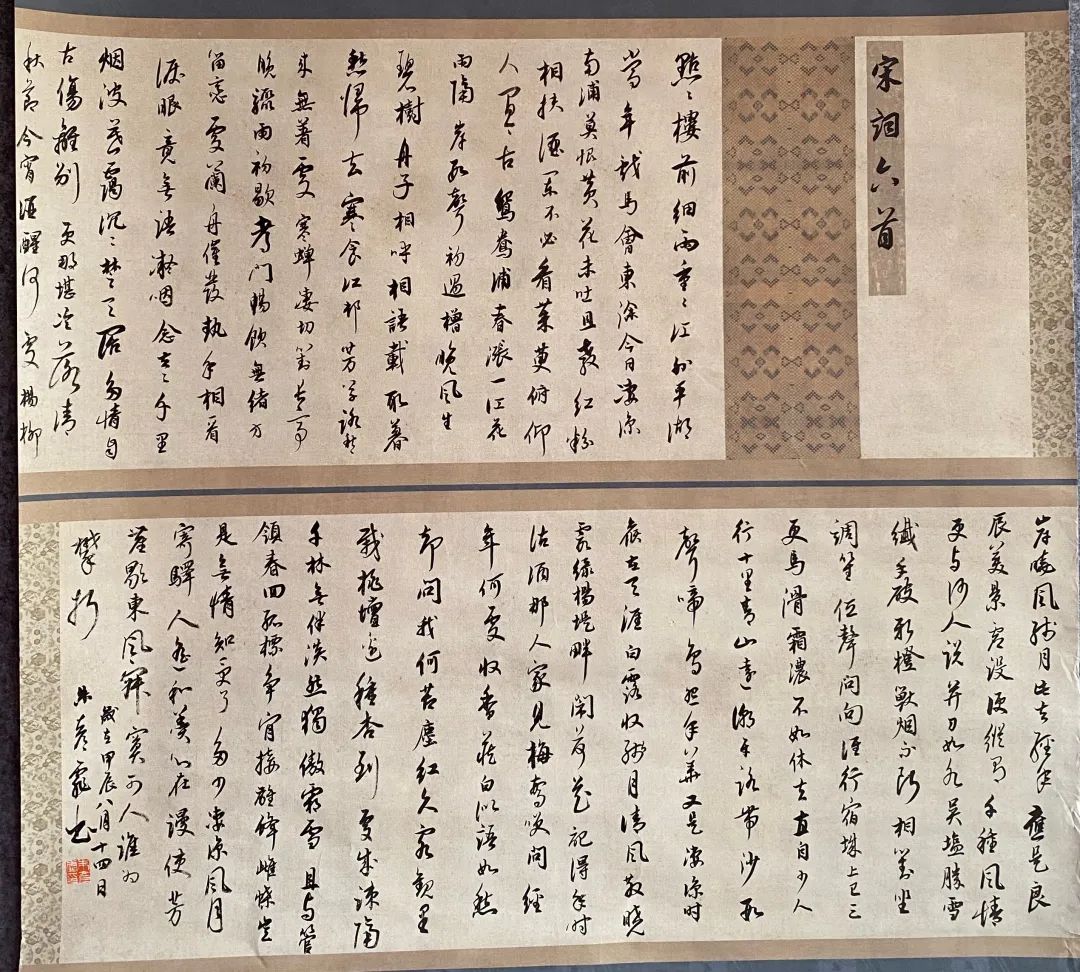 宋詞六首
點〻樓前細雨重〻江外平湖
當年戲馬會東徐今日凄凉
南浦莫恨黄花未吐且教紅粉
相扶酒闌不必看茱萸俯仰
人間今古鴛鴦浦春漲一江花
雨隔岸數聲初過櫓晚風生
碧樹舟子相呼相語載取暮
愁歸去寒食江村芳草路愁
來無著處寒蟬凄切對長亭
晚驟雨初歇都門暢飲無緒方
留戀處蘭舟催發執手相看
淚眼竟無語凝咽念去〻千里
烟波暮靄沉〻楚天闊多情自
古傷離别更那堪冷落清
秋節今宵酒醒何處楊柳
岸曉風殘月此去經年應是良
辰美景虚設便縱有千種風情
更与何人說并刀如水吴塩勝雪
纖手破新橙獸烟不斷相對坐
調笙低聲問向誰行宿城上已三
更馬滑霜濃不如休去直自少人
行十里青山遠潮平路带沙數
聲啼鳥怨年華又是凄凉時
候在天涯白露收殘月清風散曉
霞緑楊堤畔問荷花記得年時
沽酒那人家見梅驚笑問經
年何處收香藏白似語如愁
却問我何苦塵紅久客觀里
栽桃壇邊種杏到處成疎隔
千林無伴淡然獨傲霜雪且与管
領春回孤標争肯接雄蜂雌蝶豈
是無情知受了多少凄凉風月
寄驛人遥和羹心在謾使芳
塵歇東風寂寞可人誰为
攀折
歲在甲辰八月十四日